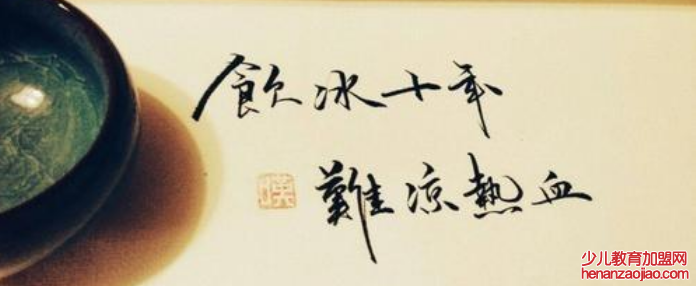 飲冰十年
難涼熱血
少儿教育加盟网
henanzaojiao.com